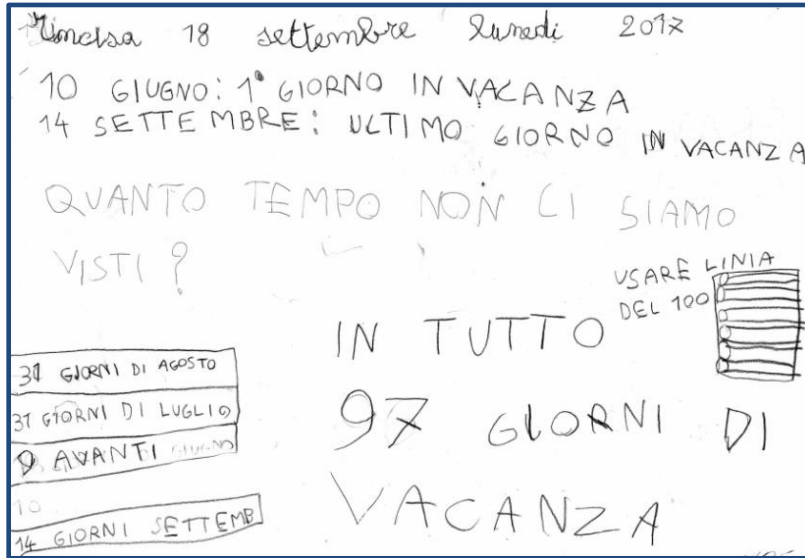 Rincisa 18 settembre lunedì 2017
10 GIUGNO: 1° GIORNO IN VACANZA
14 SETTEMBRE: ULTIMO GIORNO IN VACANZA
QUANTO TEMPO NON CI SIAMO
VISTI?
USARE LINIA
DEL 100
IN TUTTO
97 GIORNI DI
VACANZA
31 GIORNI DI AGOSTO
31 GIORNI DI LUGLIO
AVANTI GIUGNO
10
14 GIORNI SETTEMB